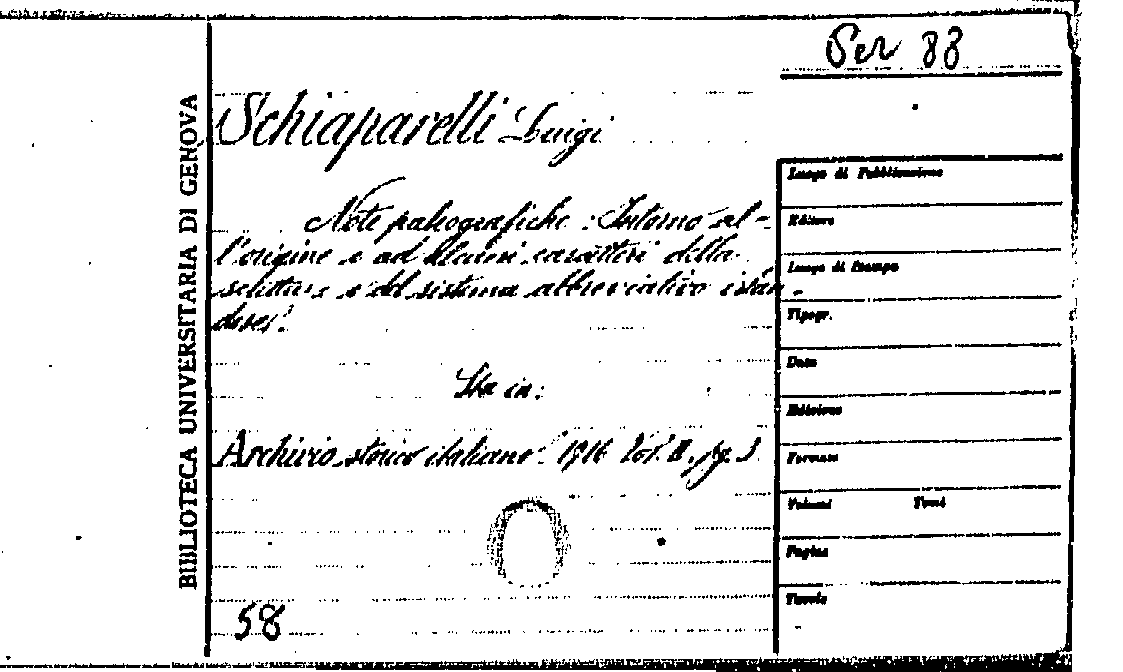 Ser 88
BIBLIOTECA UNIVERSITARIA DI GENOVA
Schiaparelli Luigi
Note paleografiche: Intorno al-
l'origine e ad alcuni caratteri della
scrittura e del sistema abbreviativo islan-
dese.
Sta in:
Archivio storico italiano. 1916 Vol. II, pg. 3
58
Luogo di Pubblicazione
Editore
Luogo di Stampa
Tipogr.
Data
Edizione
Formato
Volumi Tomi
Pagine
Tavole